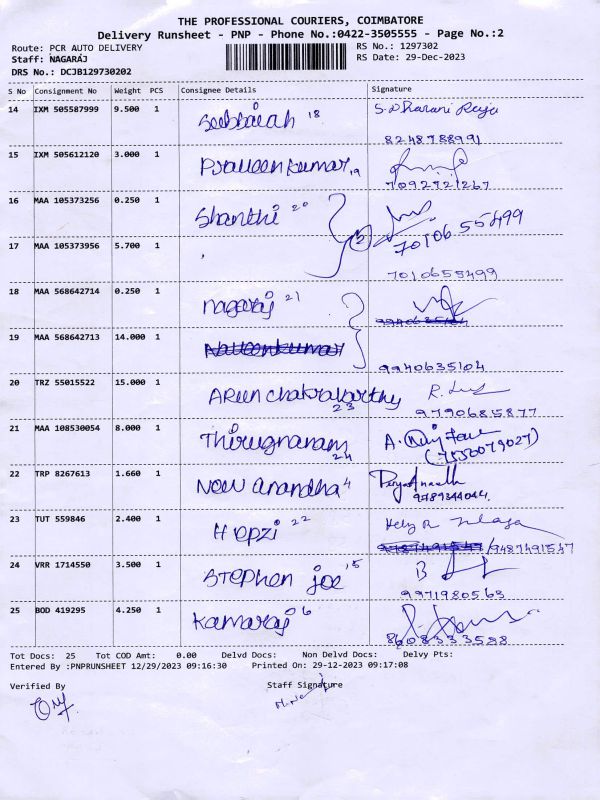 THE PROFESSIONAL COURIERS, COIMBATORE
Delivery Runsheet - PNP - Phone No.:0422-3505555 - Page No.:2
Route: PCR AUTO DELIVERY RS No.: 1297302
Staff: NAGARAJ RS Date: 29-Dec-2023
DRS No.: DCJB129730202
S No Consignment No Weight PCS Consignee Details Signature
14 IXM 505587999 9.500 1 Subbaiah 18 S. Dharani Raja
8248788991
15 IXM 505612120 3.000 1 Praveen kumar 19
7092721267
16 MAA 105373256 0.250 1 Shanthi 20
2 7010655499
17 MAA 105373956 5.700 1
7010655499
18 MAA 568642714 0.250 1 nagaraj 21
9940635104
19 MAA 568642713 14.000 1 Naveenkumar
9940635104
20 TRZ 55015522 15.000 1 Arun chakravarthy 23
9790685877
21 MAA 108530054 8.000 1 Thirugnanam 24
22 TRP 8267613 1.660 1 New anandha 4
9789344044
23 TUT 559846 2.400 1 Hepzi 22
9487491547 / 9487491547
24 VRR 1714550 3.500 1 Stephen joe 15
9971980563
25 BOD 419295 4.250 1 Kamaraj 6
8608333588
Tot Docs: 25 Tot COD Amt: 0.00 Delvd Docs: Non Delvd Docs: Delvy Pts:
Entered By :PNPRUNSHEET 12/29/2023 09:16:30 Printed On: 29-12-2023 09:17:08
Verified By Staff Signature